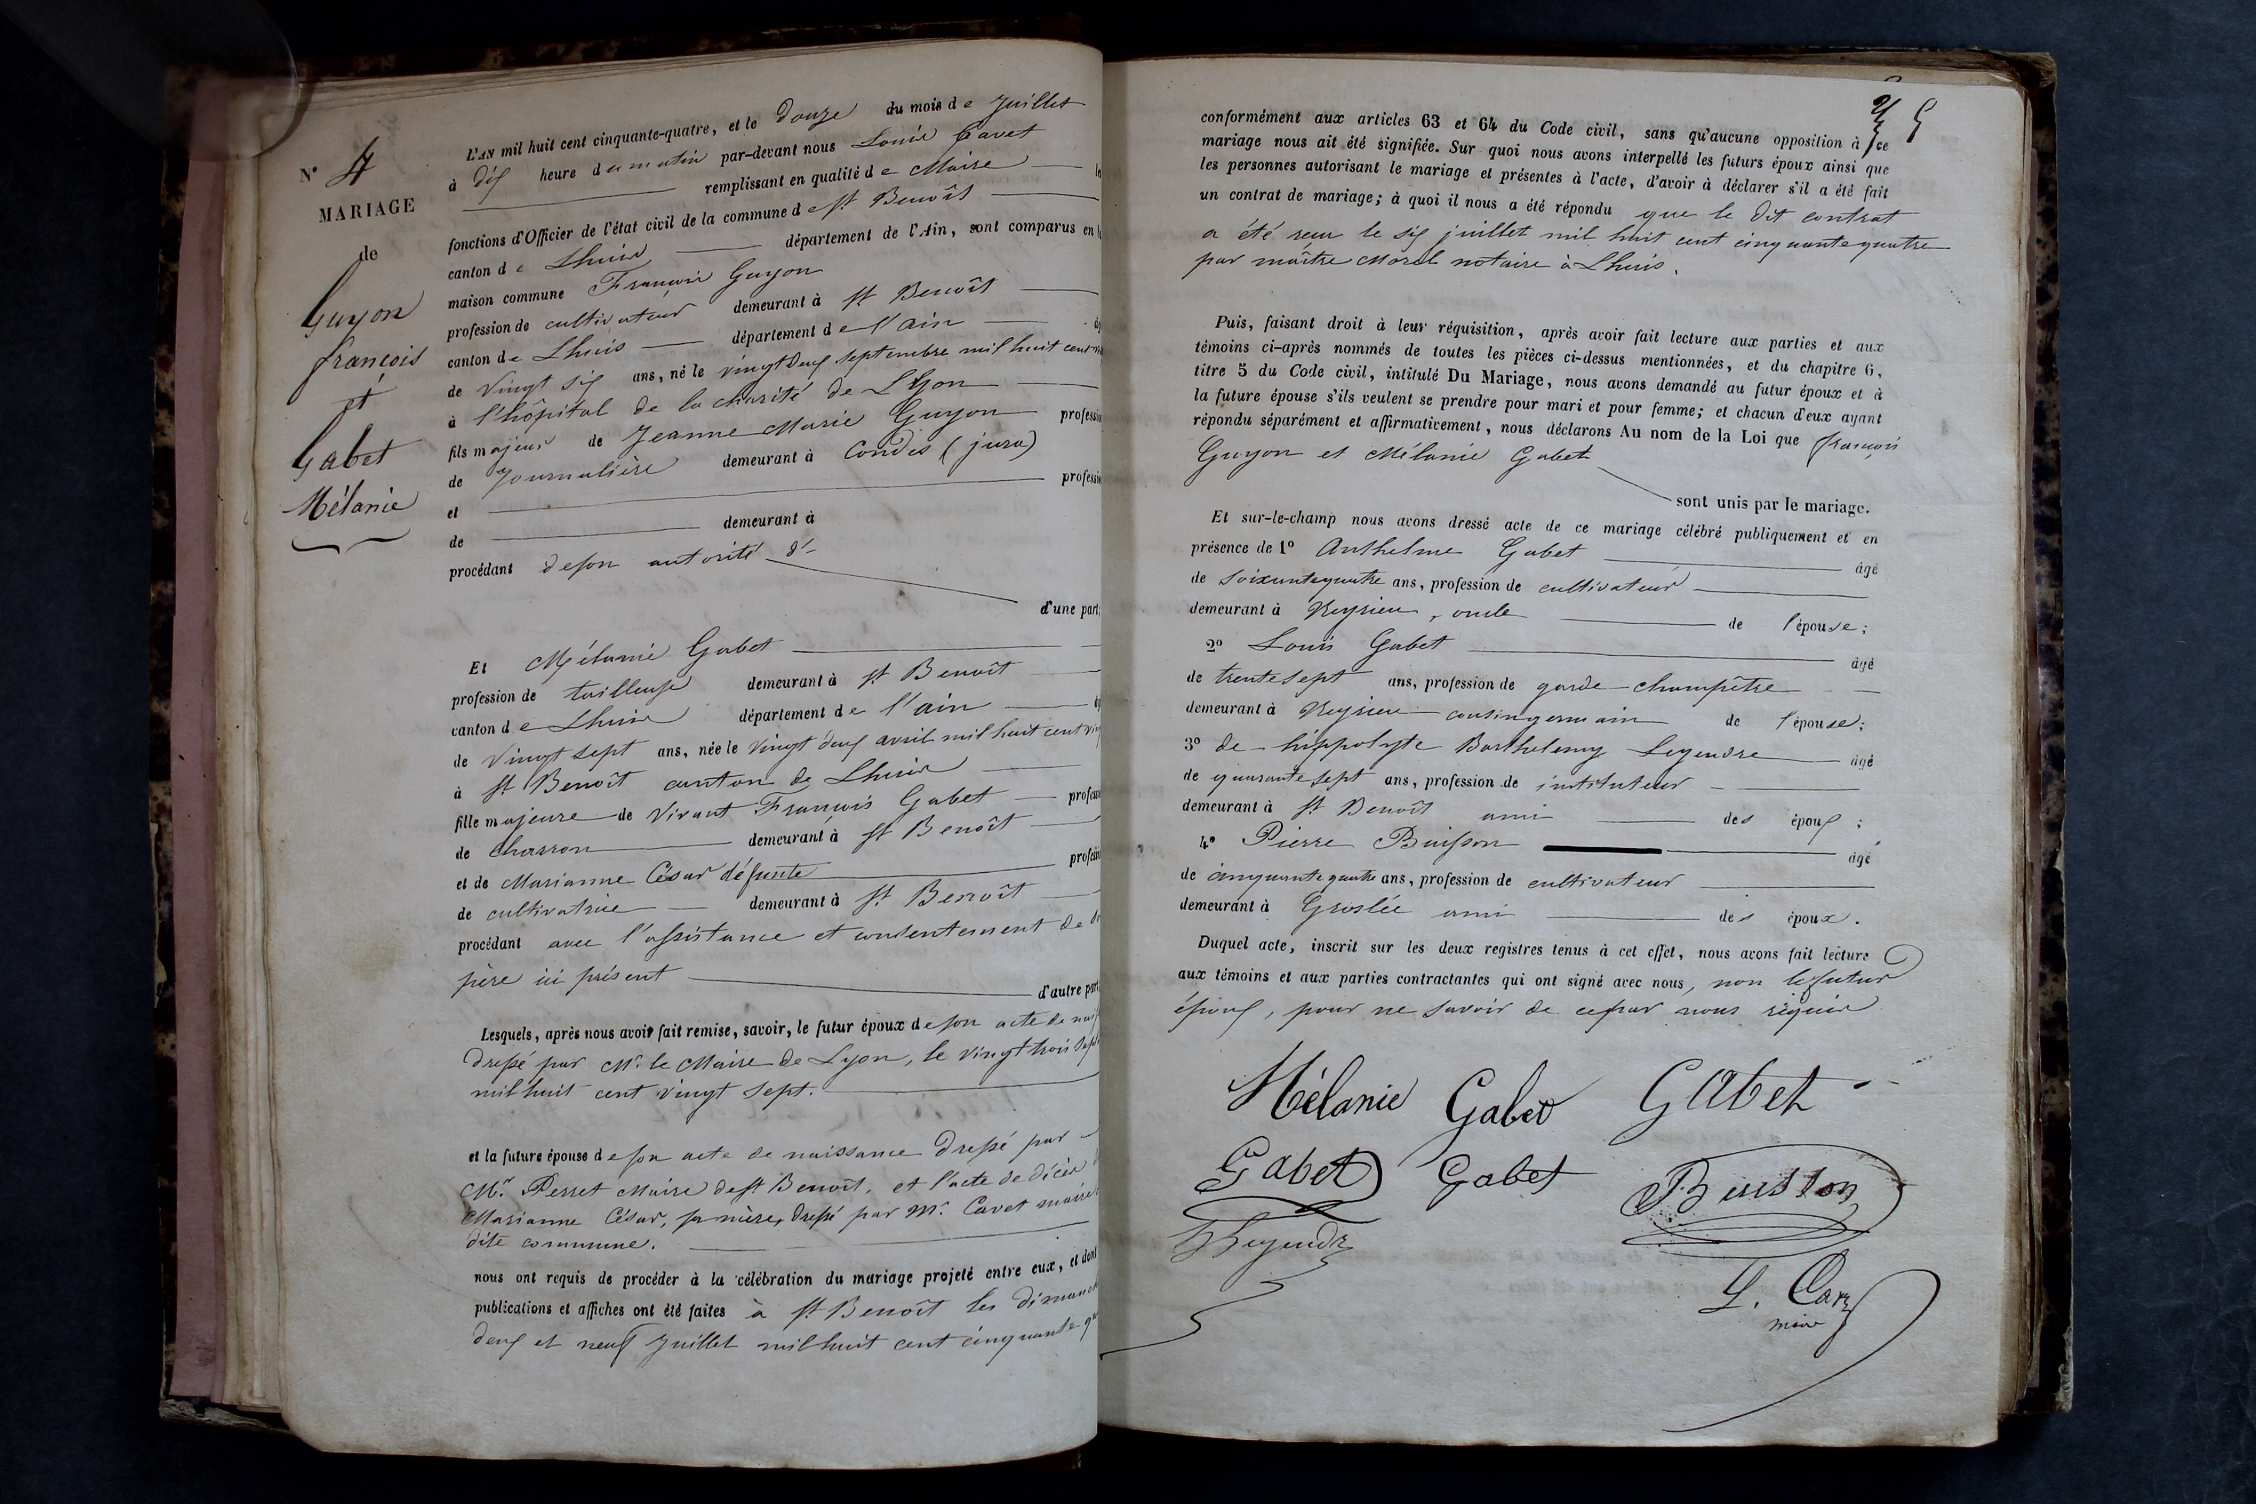 N° 4
MARIAGE
de
Guyon
françois
et
Gabet
Mélanie
L'AN mil huit cent cinquante-quatre, et le Douze du mois de Juillet
à dix heure du matin par-devant nous Louis Cavet
remplissant en qualité de Maire les
fonctions d'Officier de l'état civil de la commune de St Benoît
canton de Lhuis département de l'Ain, sont comparus en la
maison commune François Guyon
profession de cultivateur demeurant à St Benoît
canton de Lhuis département de l'ain
de vingt six ans, né le vingt deux septembre mil huit cent
à l'hôpital de la charité de Lyon
fils majeur de Jeanne Marie Guyon profession
de Journalière demeurant à Condes (jura)
et profession
de demeurant à
procédant de son autorité d'
d'une part,
Et Mélanie Gabet
profession de tailleuse demeurant à St Benoît
canton de Lhuis département de l'ain
de vingt sept ans, née le vingt deux avril mil huit cent
à St Benoît canton de Lhuis
fille majeure de vivant François Gabet profession
de charron demeurant à St Benoît
et de Marianne César défunte profession
de cultivatrice demeurant à St Benoît
procédant avec l'assistance et consentement de
père ici présent
d'autre part
Lesquels, après nous avoir fait remise, savoir, le futur époux de son acte de
dressé par Mr. le Maire de Lyon, le vingt trois
mil huit cent vingt sept.
et la future épouse de son acte de naissance dressé par
Mr. Perret Maire de St Benoît, et l'acte de décès
Marianne César, sa mère, dressé par Mr. Cavet maire
dite commune.
nous ont requis de procéder à la célébration du mariage projeté entre eux, et dont
publications et affiches ont été faites à St Benoît les
deux et neuf Juillet mil huit cent cinquante
conformément aux articles 63 et 64 du Code civil, sans qu'aucune opposition à ce
mariage nous ait été signifiée. Sur quoi nous avons interpellé les futurs époux ainsi que
les personnes autorisant le mariage et présentes à l'acte, d'avoir à déclarer s'il a été fait
un contrat de mariage; à quoi il nous a été répondu que le dit contrat
a été reçu le six juillet mil huit cent cinquante quatre
par maître Morel notaire à Lhuis.
Puis, faisant droit à leur réquisition, après avoir fait lecture aux parties et aux
témoins ci-après nommés de toutes les pièces ci-dessus mentionnées, et du chapitre 6,
titre 5 du Code civil, intitulé Du Mariage, nous avons demandé au futur époux et à
la future épouse s'ils veulent se prendre pour mari et pour femme; et chacun d'eux ayant
répondu séparément et affirmativement, nous déclarons Au nom de la Loi que françois
Guyon et Mélanie Gabet
sont unis par le mariage.
Et sur-le-champ nous avons dressé acte de ce mariage célébré publiquement et en
présence de 1° Anthelme Gabet âgé
de soixante quatre ans, profession de cultivateur
demeurant à Veyrieu, oncle de l'épouse;
2° Louis Gabet âgé
de trente sept ans, profession de garde champêtre
demeurant à Veyrieu cousin germain de l'épouse;
3° de hippolyte Barthelemy Legendre âgé
de quarante sept ans, profession de instituteur
demeurant à St Benoît ami des époux;
4° Pierre Buisson âgé
de cinquante quatre ans, profession de cultivateur
demeurant à Groslée ami des époux.
Duquel acte, inscrit sur les deux registres tenus à cet effet, nous avons fait lecture
aux témoins et aux parties contractantes qui ont signé avec nous, non le futur
époux, pour ne savoir de ce par nous requis
Mélanie Gabet Gabet
Gabet Gabet Buisson
Legendre
L. Cavet
maire